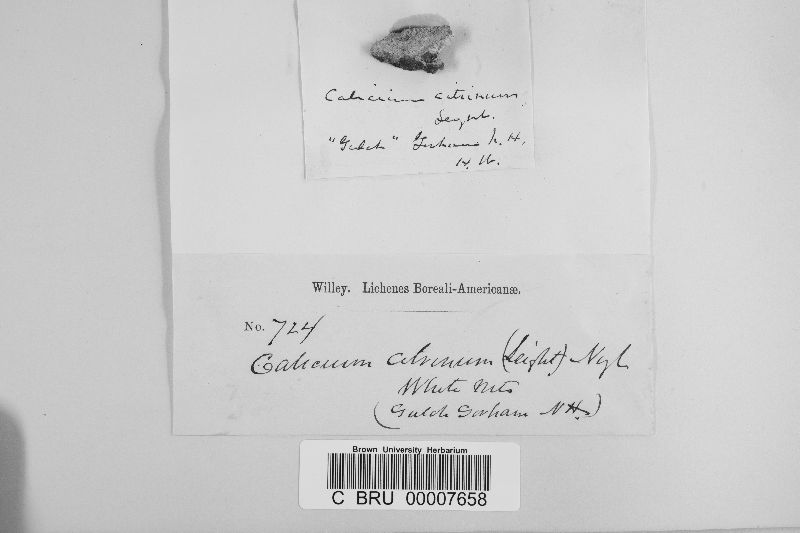 Calicium citrinum
Leight.
"Gulch" Gorham N. H.
H. W.
Willey. Lichenes Boreali-Americanæ.
No. 724
Calicium citrinum (Leight) Nyl
White Mts
(Gulch Gorham N H.)
Brown University Herbarium
C BRU 00007658